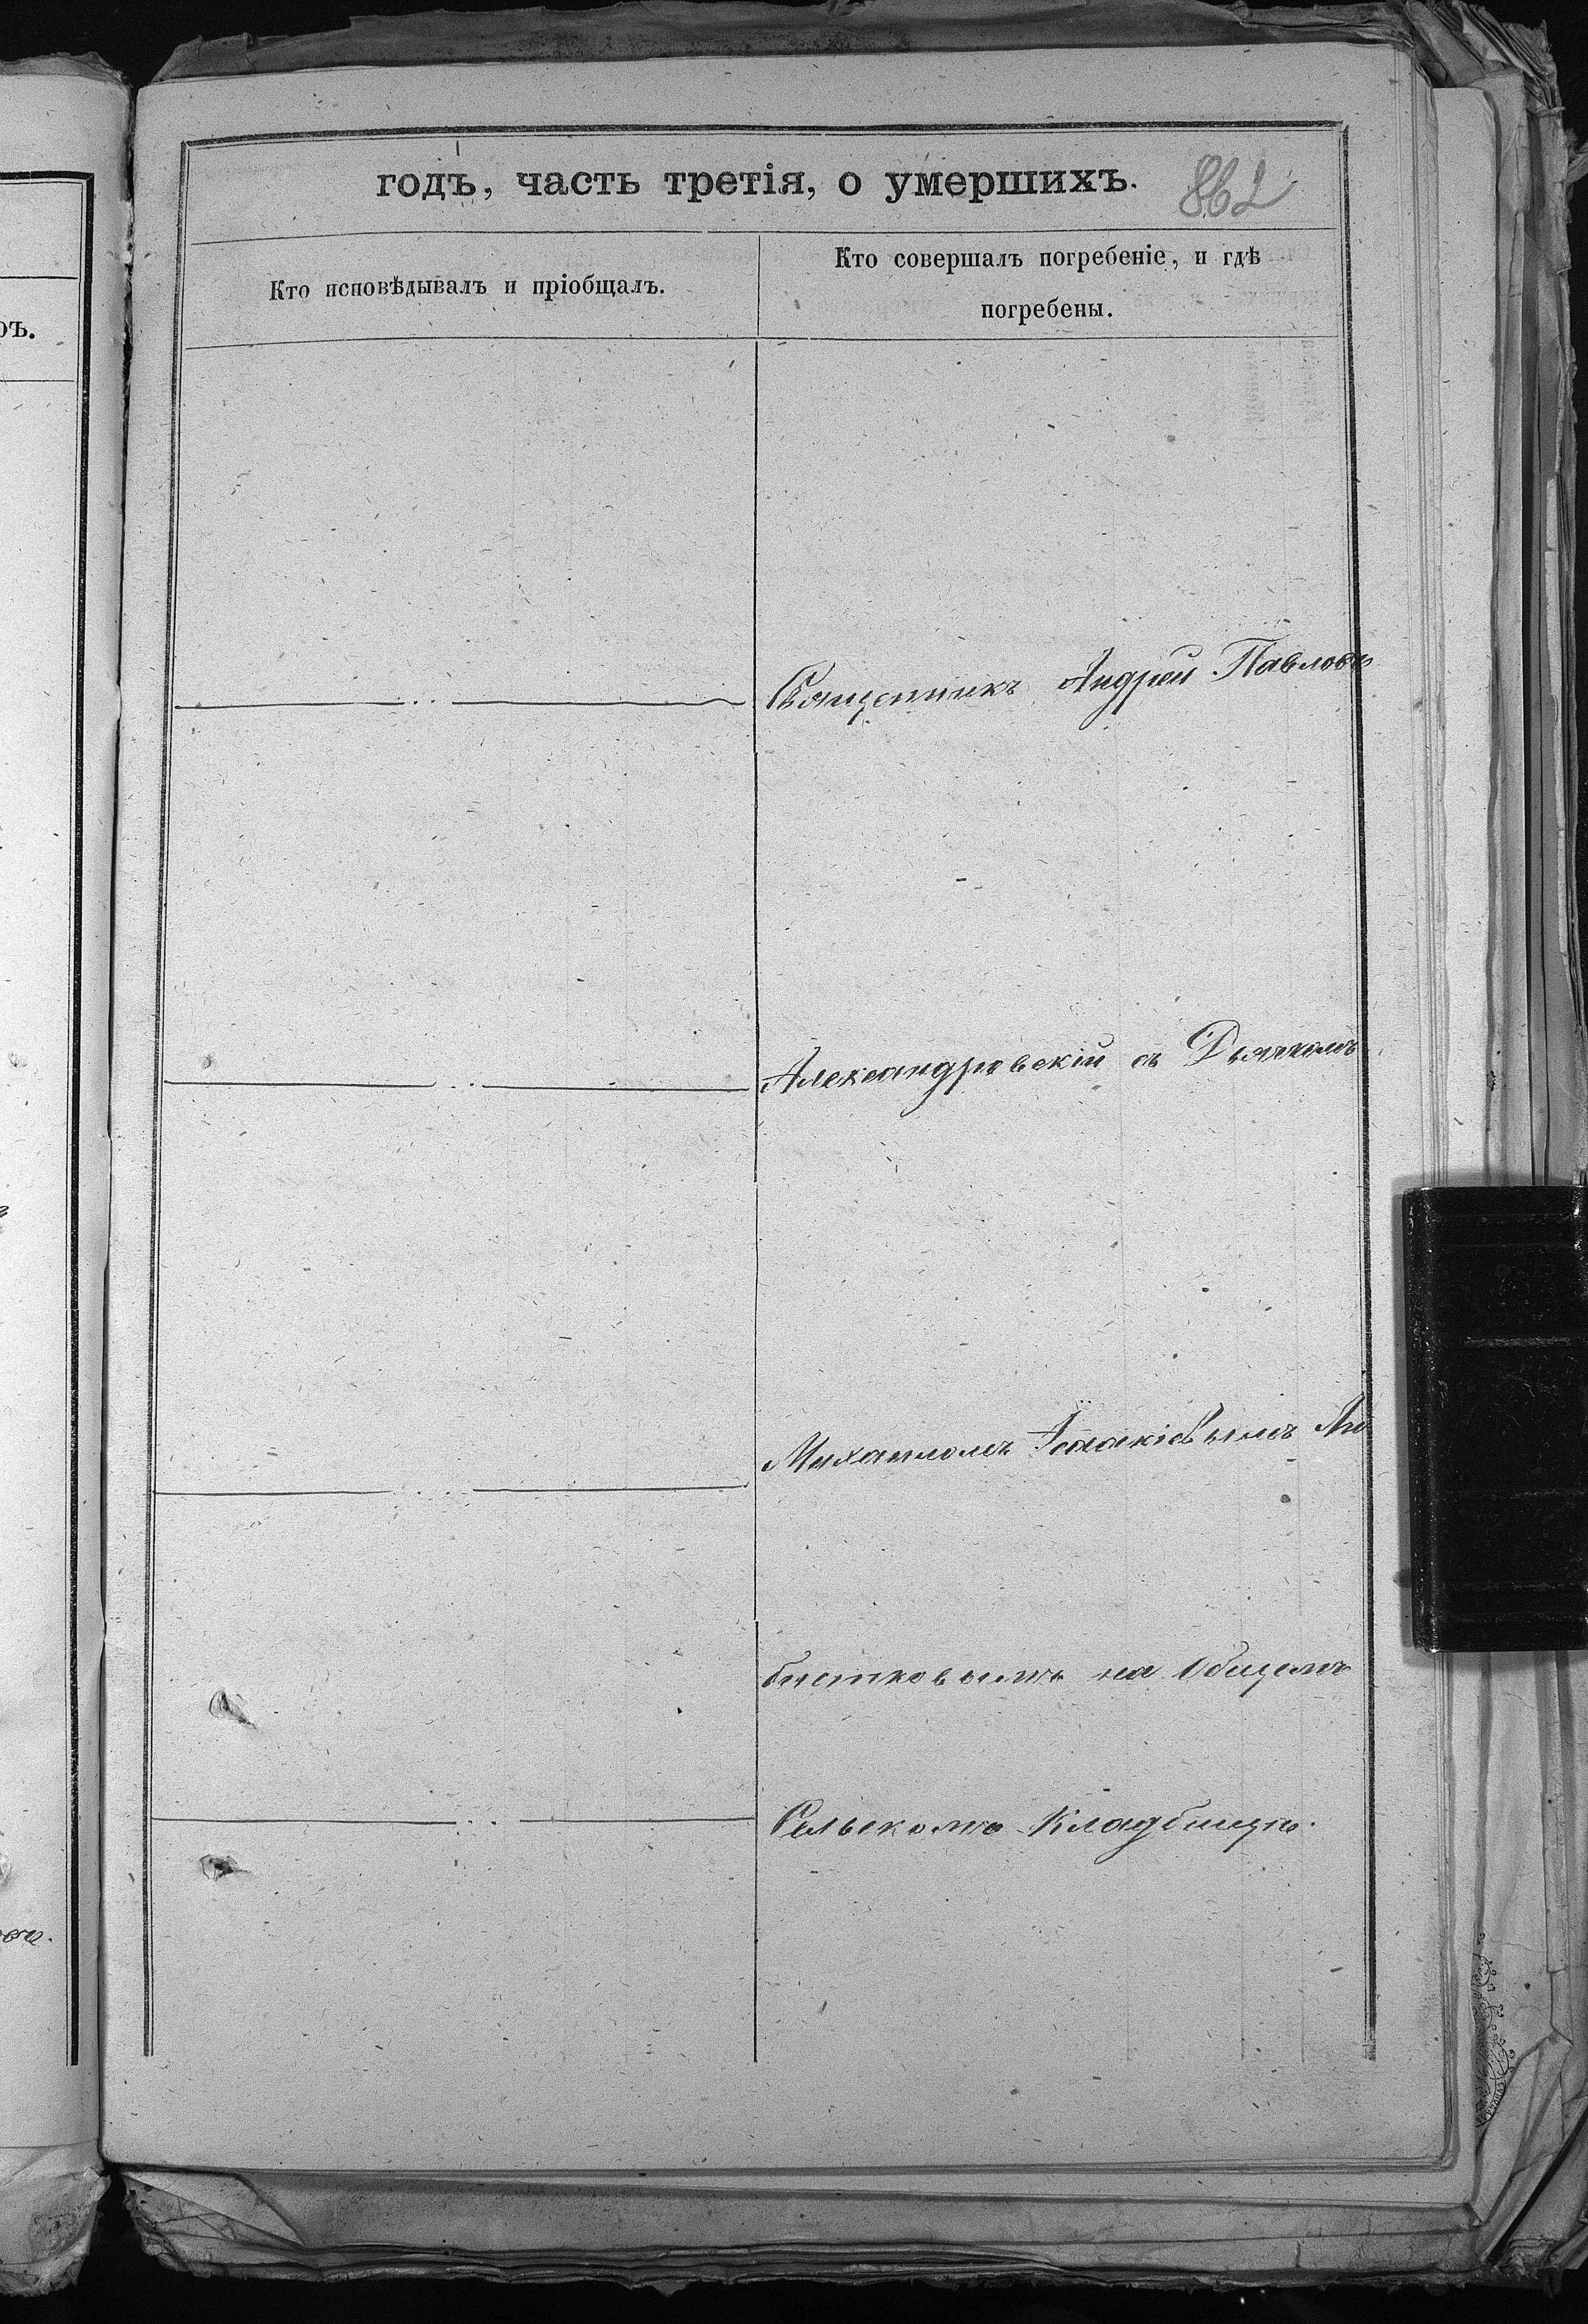 годъ, часть третія, о умершихъ.
862
Кто исповѣдывалъ и пріобщалъ.
Кто совершалъ погребеніе, и гдѣ
погребены.
Священникъ Андрей Павловъ
Александровскій съ Дьячкомъ
Михаиломъ Исаакіевымъ Лю
битковымъ на Общемъ
Сельскомъ Кладбищѣ.